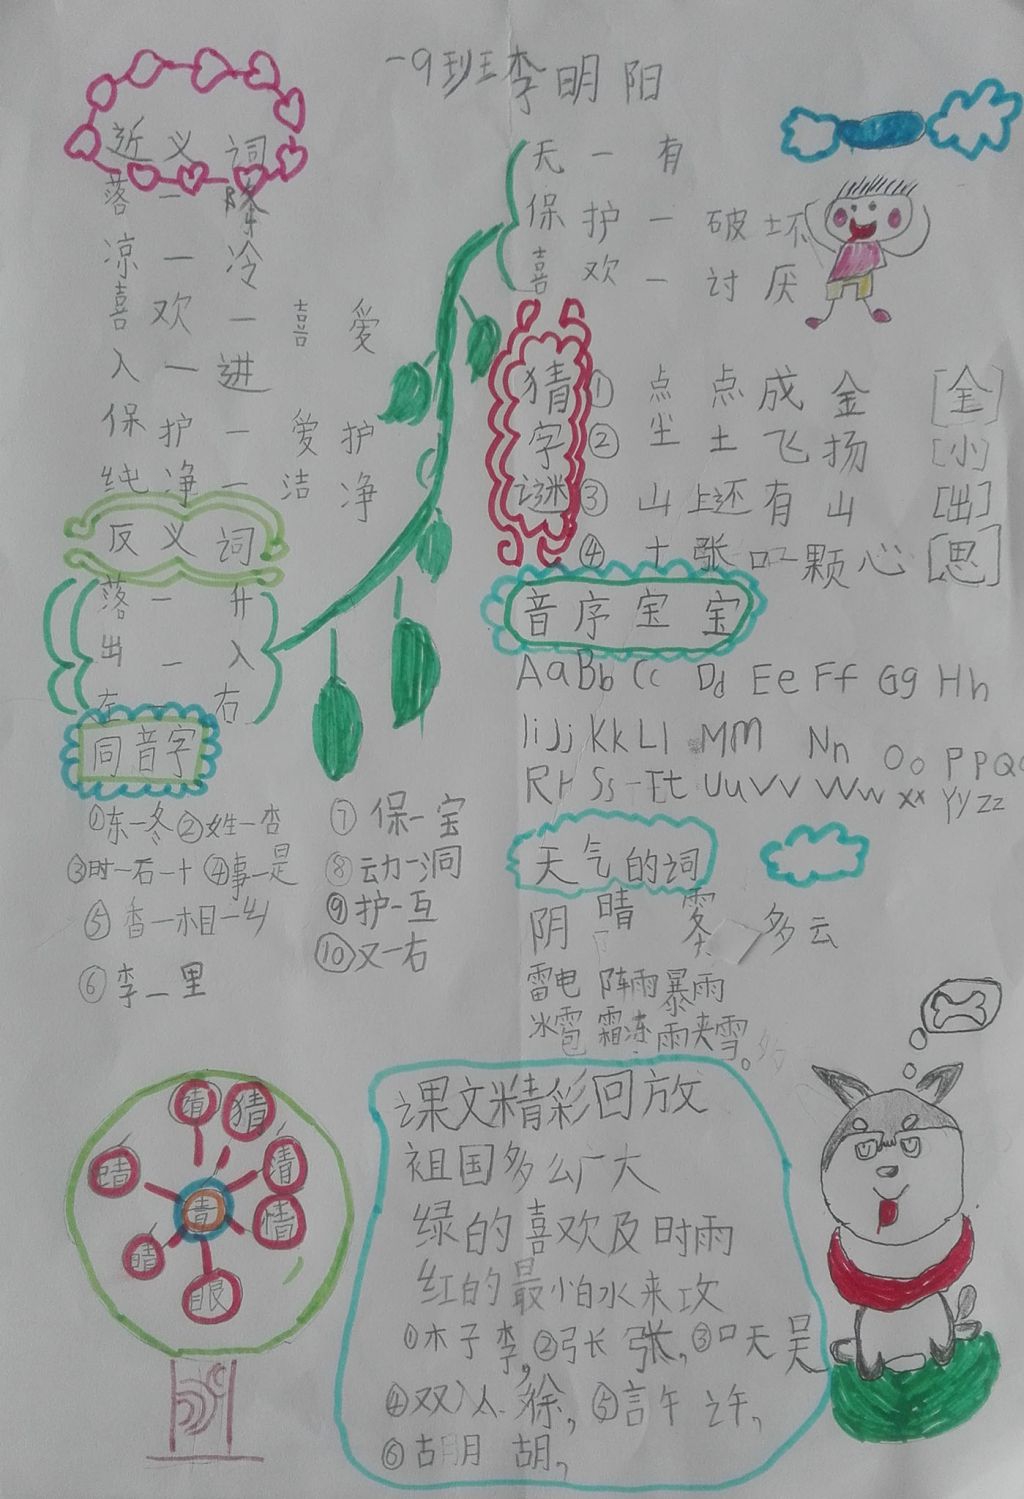 一9班李明阳
近义词
落一降
凉一冷
喜欢一喜爱
入一进
保护一爱护
纯净一洁净
反义词
落一升
出一入
左一右
无一有
保护一破坏
喜欢一讨厌
猜字谜
①点点成金[金]
②尘土飞扬[小]
③山上还有山[出]
④十张口一颗心[思]
同音字
①东一冬②姓一杏
③时一石一十④事一是
⑤香一相一乡
⑥李一里
⑦保一宝
⑧动一洞
⑨护一互
⑩又一右
音序宝宝
Aa Bb Cc Dd Ee Ff Gg Hh
Ii Jj Kk Ll Mm Nn Oo Pp Qq
Rr Ss Tt Uu Vv Ww Xx Yy Zz
天气的词
阴晴雾多云
雷电阵雨暴雨
冰雹霜冻雨夹雪。
猜
清
情
眼
晴
睛
青
课文精彩回放
祖国多么广大
绿的喜欢及时雨
红的最怕水来攻
①木子李，②弓长张，③口天吴
④双人徐，⑤言午许，
⑥古月胡，